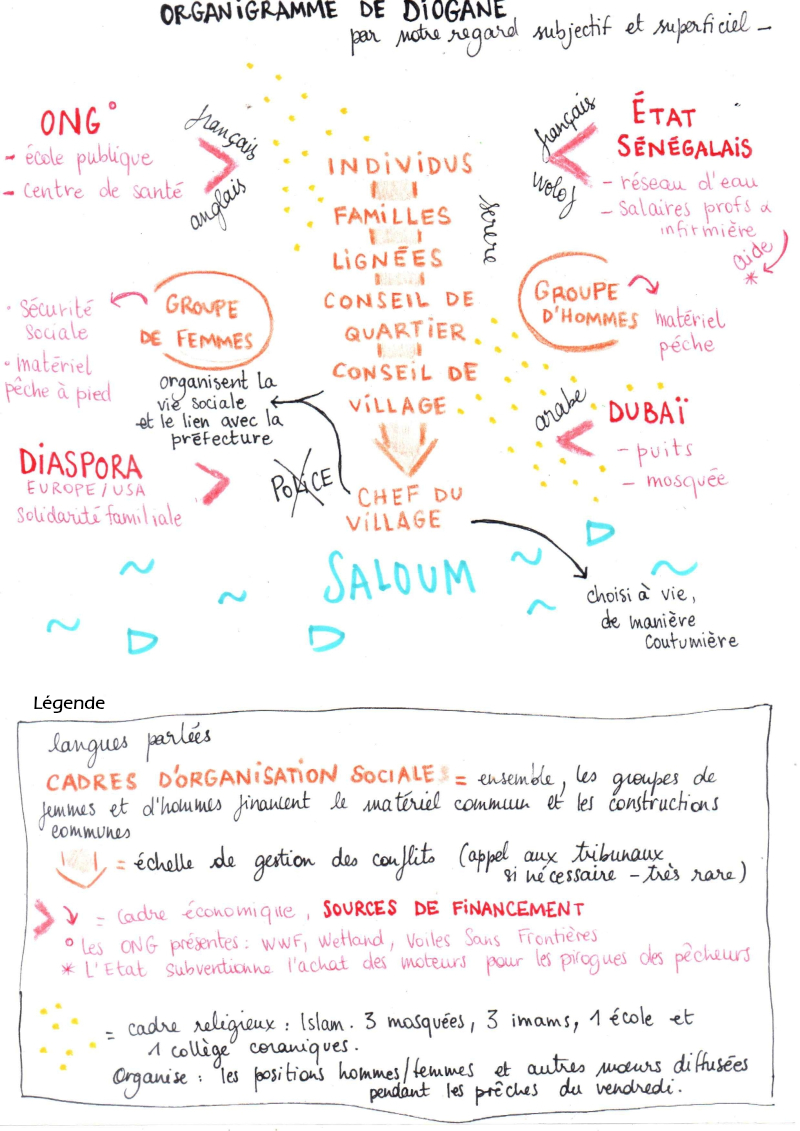 ORGANIGRAMME DE DIOGANE
par notre regard subjectif et superficiel -
ONG°
- école publique
- centre de santé
français
anglais
INDIVIDUS
FAMILLES
LIGNÉES
CONSEIL DE
QUARTIER
CONSEIL DE
VILLAGE
CHEF DU
VILLAGE
serere
français
wolof
ÉTAT
SÉNÉGALAIS
- réseau d'eau
- Salaires profs &
infirmière
aide
*
GROUPE
DE FEMMES
• Sécurité
sociale
• matériel
pêche à pied
GROUPE
D'HOMMES
matériel
péche
organisent la
vie sociale
et le lien avec la
préfecture
arabe
DUBAÏ
- puits
- mosquée
DIASPORA
EUROPE/USA
Solidarité familiale
POLICE
SALOUM
choisi à vie,
de manière
coutumière
Légende
langues parlées
CADRES D'ORGANISATION SOCIALE = ensemble, les groupes de
femmes et d'hommes financent le matériel commun et les constructions
communes
= échelle de gestion des conflits (appel aux tribunaux
si nécessaire - très rare)
= Cadre économique, SOURCES DE FINANCEMENT
° Les ONG présentes : WWF, Wetland, Voiles Sans Frontières
* L'Etat subventionne l'achat des moteurs pour les pirogues des pêcheurs
= cadre religieux : Islam. 3 mosquées, 3 imams, 1 école et
1 collège coraniques.
Organise : les positions hommes/femmes et autres mœurs diffusées
pendant les prêches du vendredi.